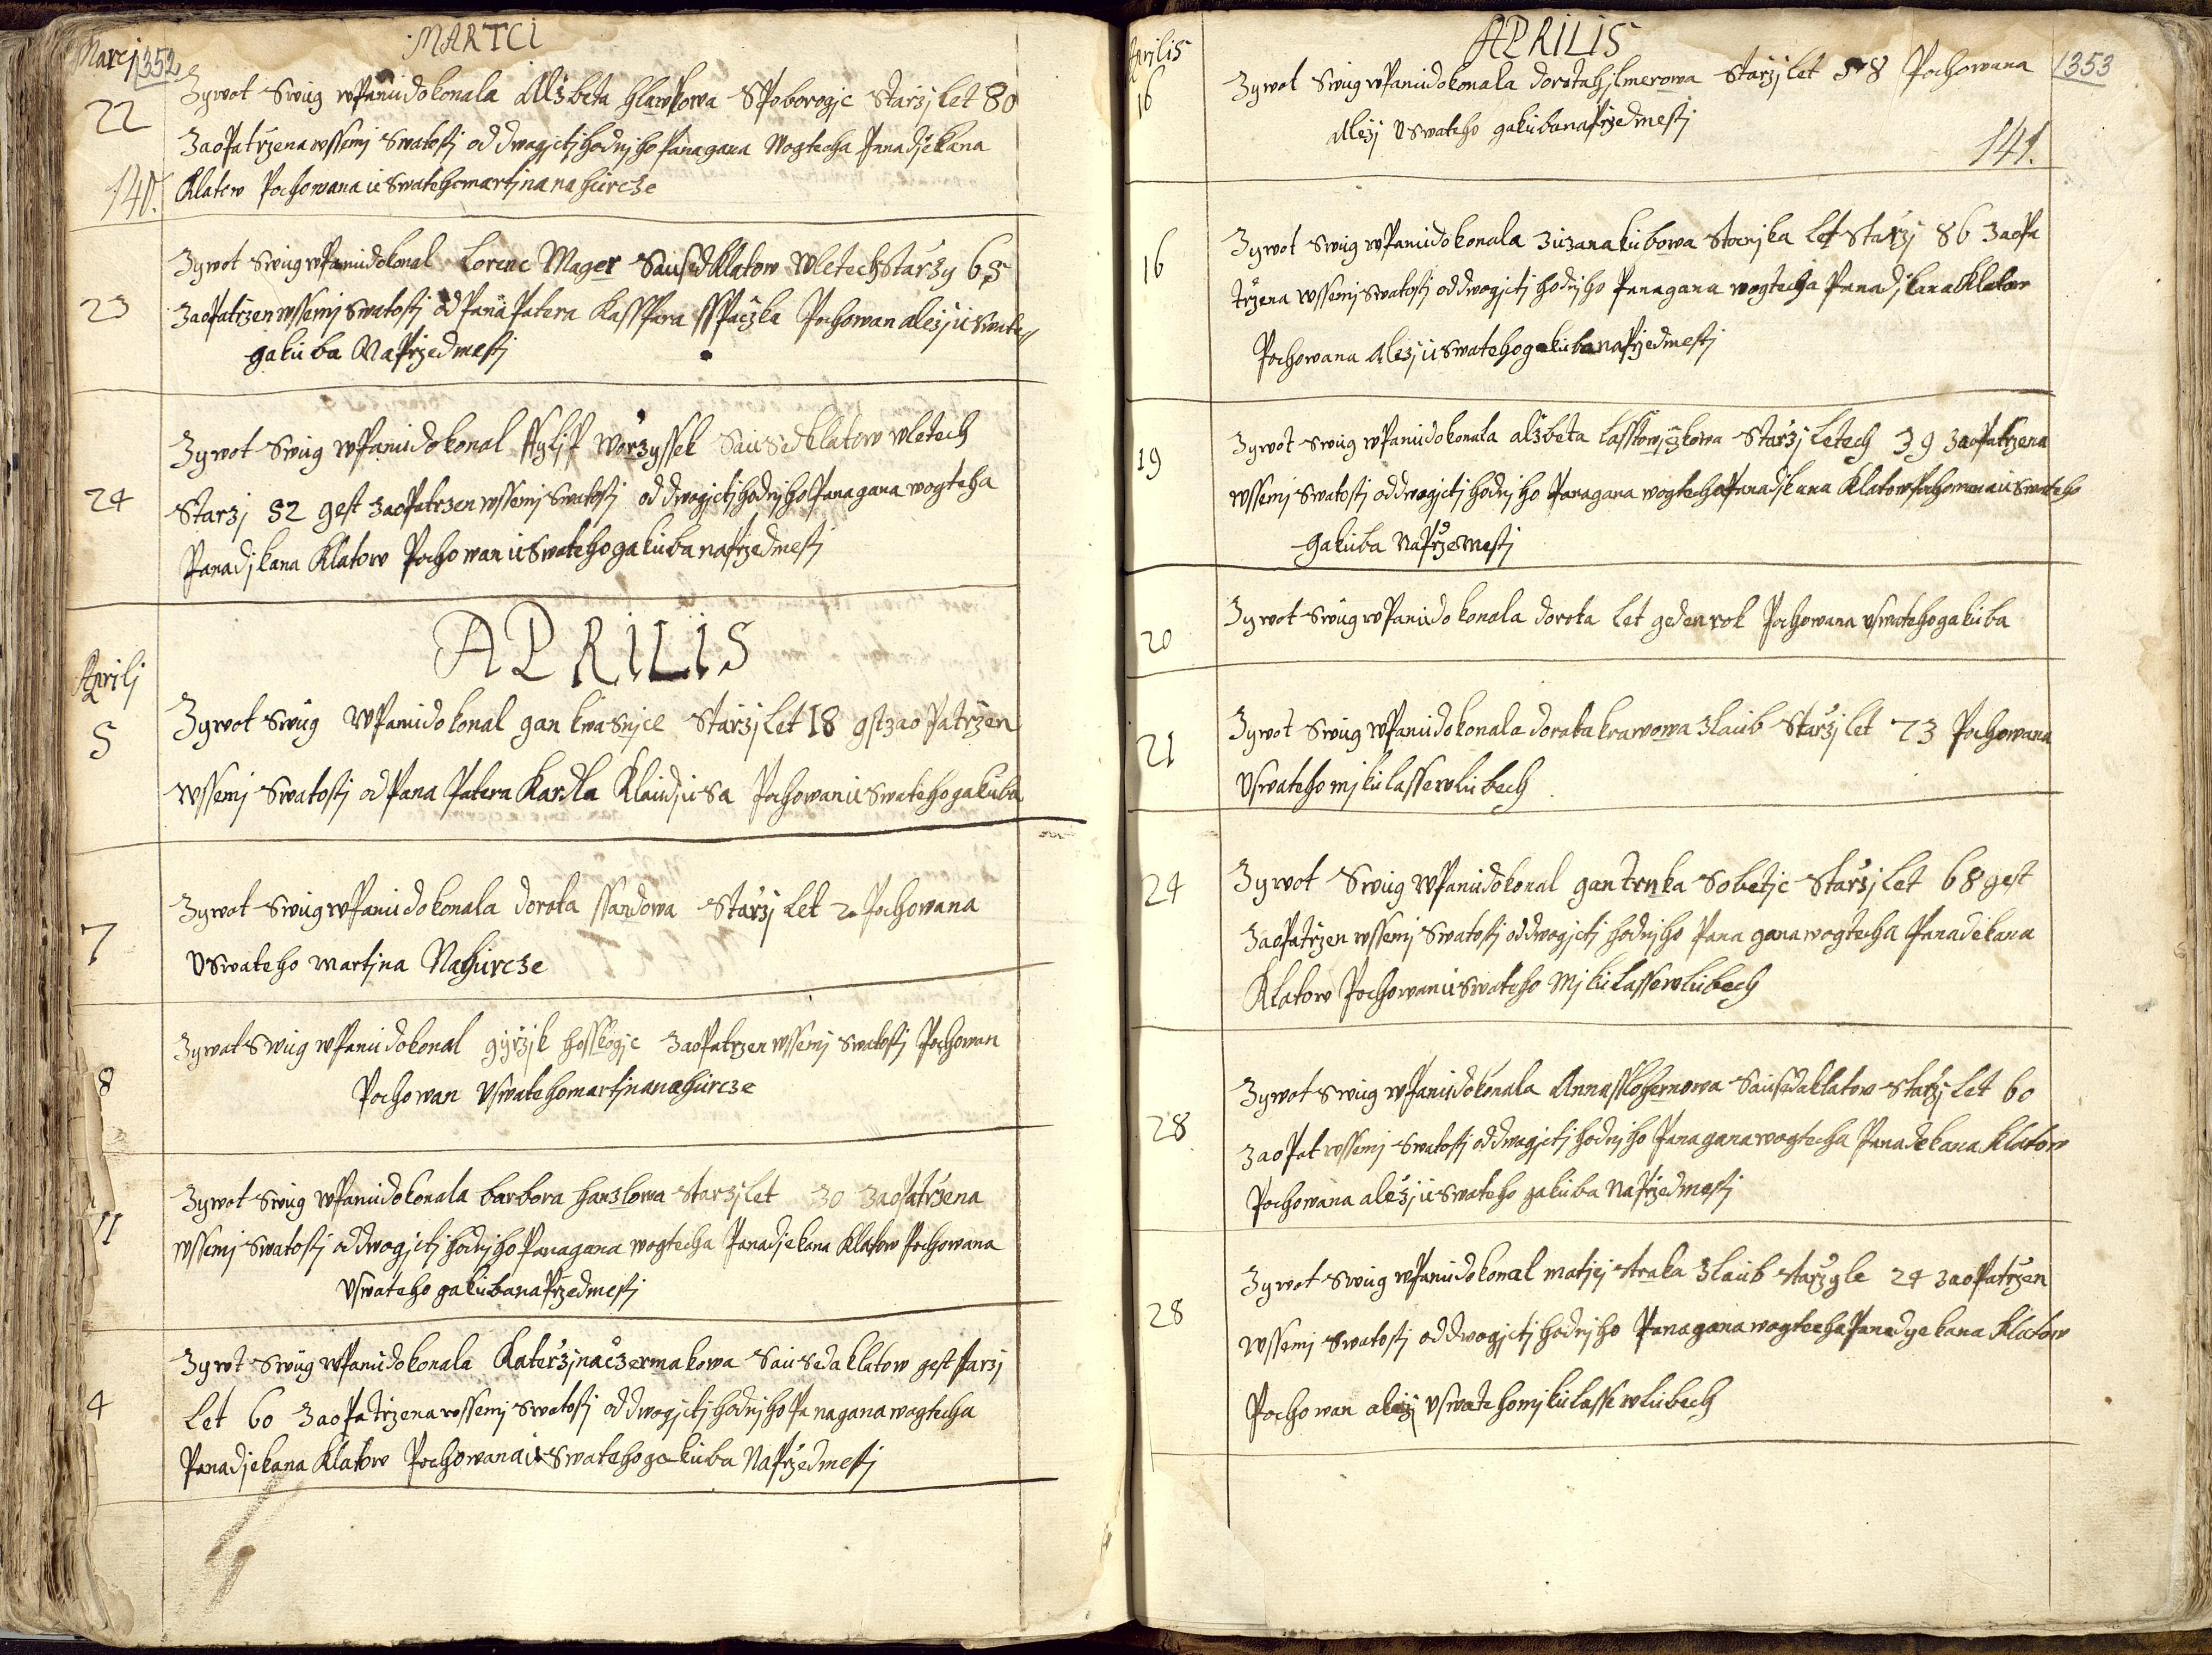 Marcj 1352 MARTCI
22
Zywot Swug wPanu dokonala Alžbeta hlawkowa SPoborogic Starzj Let 80
ZaoPatrzena wssemj Swatostj od dwogjctj hodnjho Pana gana Wogtecha Pana djekana
140.
Klatow Pochowana u Swateho martjna na hurcze
Zywot Swug wPanu dokonal Lorenc Mager Saused Klatow w letech Starzy 65
23
zaoPatrzen wssemj Swatostj od Pana Patera KassPara ssPaczka Pochowan alezj u Swate
gakuba Na Przedmestj
Zywot Swug wPanu dokonal ffyljP Worzyssek Saused klatow w letech
24
Starzj 52 gest zaoPatrzen wssemj Swatostj od dwogjctj hodnjho Pana gana wogtecha
Pana djkana Klatow Pochowan u Swateho gakuba na Przedmestj
APRILIS
Aprilj
5
Zywot Swug wPanu dokonal gan kwasnjce Starzj Let 18 gst zaoPatrzen
wssemj Swatostj od Pana Patera Kardla Klaudjusa Pochowan u Swateho gakuba
7
Zywot Swug wPanu dokonala dorota ssandowa Starzj Let 2 Pochowana
U Swateho martjna Na hurcze
8
Zywat Swug wPanu dokonal gyrzjk hosskogic zaoPatrzen wssemj Swatostj Pochowan
Pochowan U swateho martjna na hurcze
11
Zywot Swug wPanu dokonala barbora hanzlowa starzj let 30 zaoPatrzena
wssemj Swatostj od dwogjctj hodnjho Pana gana wogtecha Pana djekana Klatow Pochowana
U swateho gakuba na Przedmestj
4
Zywt Swug wPanu dokonala Katerzjna czermakowa Sauseda klatow gest starzj
Let 60 zaoPatrzena wssemj Swatostj od dwogjctj hodnjho Pana gana wogtecha
Pana djekana Klatow Pochowana u Swateho gakuba Na Przedmestj
Aprilis APRILIS 1353
16
Zywot Swug wPanu dokonala dorota hjlmerowa Starzj Let 58 Pochowana
Alezj U Swateho gakuba na Przedmestj
141.
16
Zywot Swug wPanu dokonala zuzana kubowa Let Starzj 86 ZaoPa
trzena wssemj Swatostj od dwogjctj hodnjho Pana gana wogtecha Pana djkana Klatow
Pochowana Alezj u Swateho gakuba na Przedmestj
19
Zywot Swug wPanu dokonala alzbeta lasstowjczkowa Starzj Letech 39 zaoPatrzena
wssemj Swatostj od dwogjctj hodnjho Pana gana wogtecha Pana djkana Klatow Pochowana u Swateho
Gakuba Na Przemestj
20
Zywot Swug wPanu dokonala dorota Let geden rok Pochowana U swateho gakuba
21
Zywot Swug wPanu dokonala dorata krawowa zlaub Starzj let 73 Pochowana
U swateho mjkulasse wlubech
24
Zywot Swug wPanu dokonal gan trnka Sobetjc Starzj Let 68 gest
ZaoPatrzen wssemj Swatostj od dwogjctj hodnjho Pana gana wogtecha Pana dekana
Klatow Pochowan u Swateho Mjkulasse wlubech
28
Zywot Swug wPanu dokonala Anna sslohernowa Sauseda klatow Starzj Let 60
zaoPat wssemj Swatostj od dwogjctj hodnjho Pana gana wogtecha Pana dekana Klatow
Pochowana alezj u Swateho gakuba Na Przedmestj
28
Zywot Swug wPanu dokonal matjej straka zlaub starzy le 24 zaoPatrzen
wssemj Swatostj od dwogjctj hodnjho Pana gana wogtecha Pana dyekana Klatow
Pochowan alezj U swateho mjkulasse wlubech